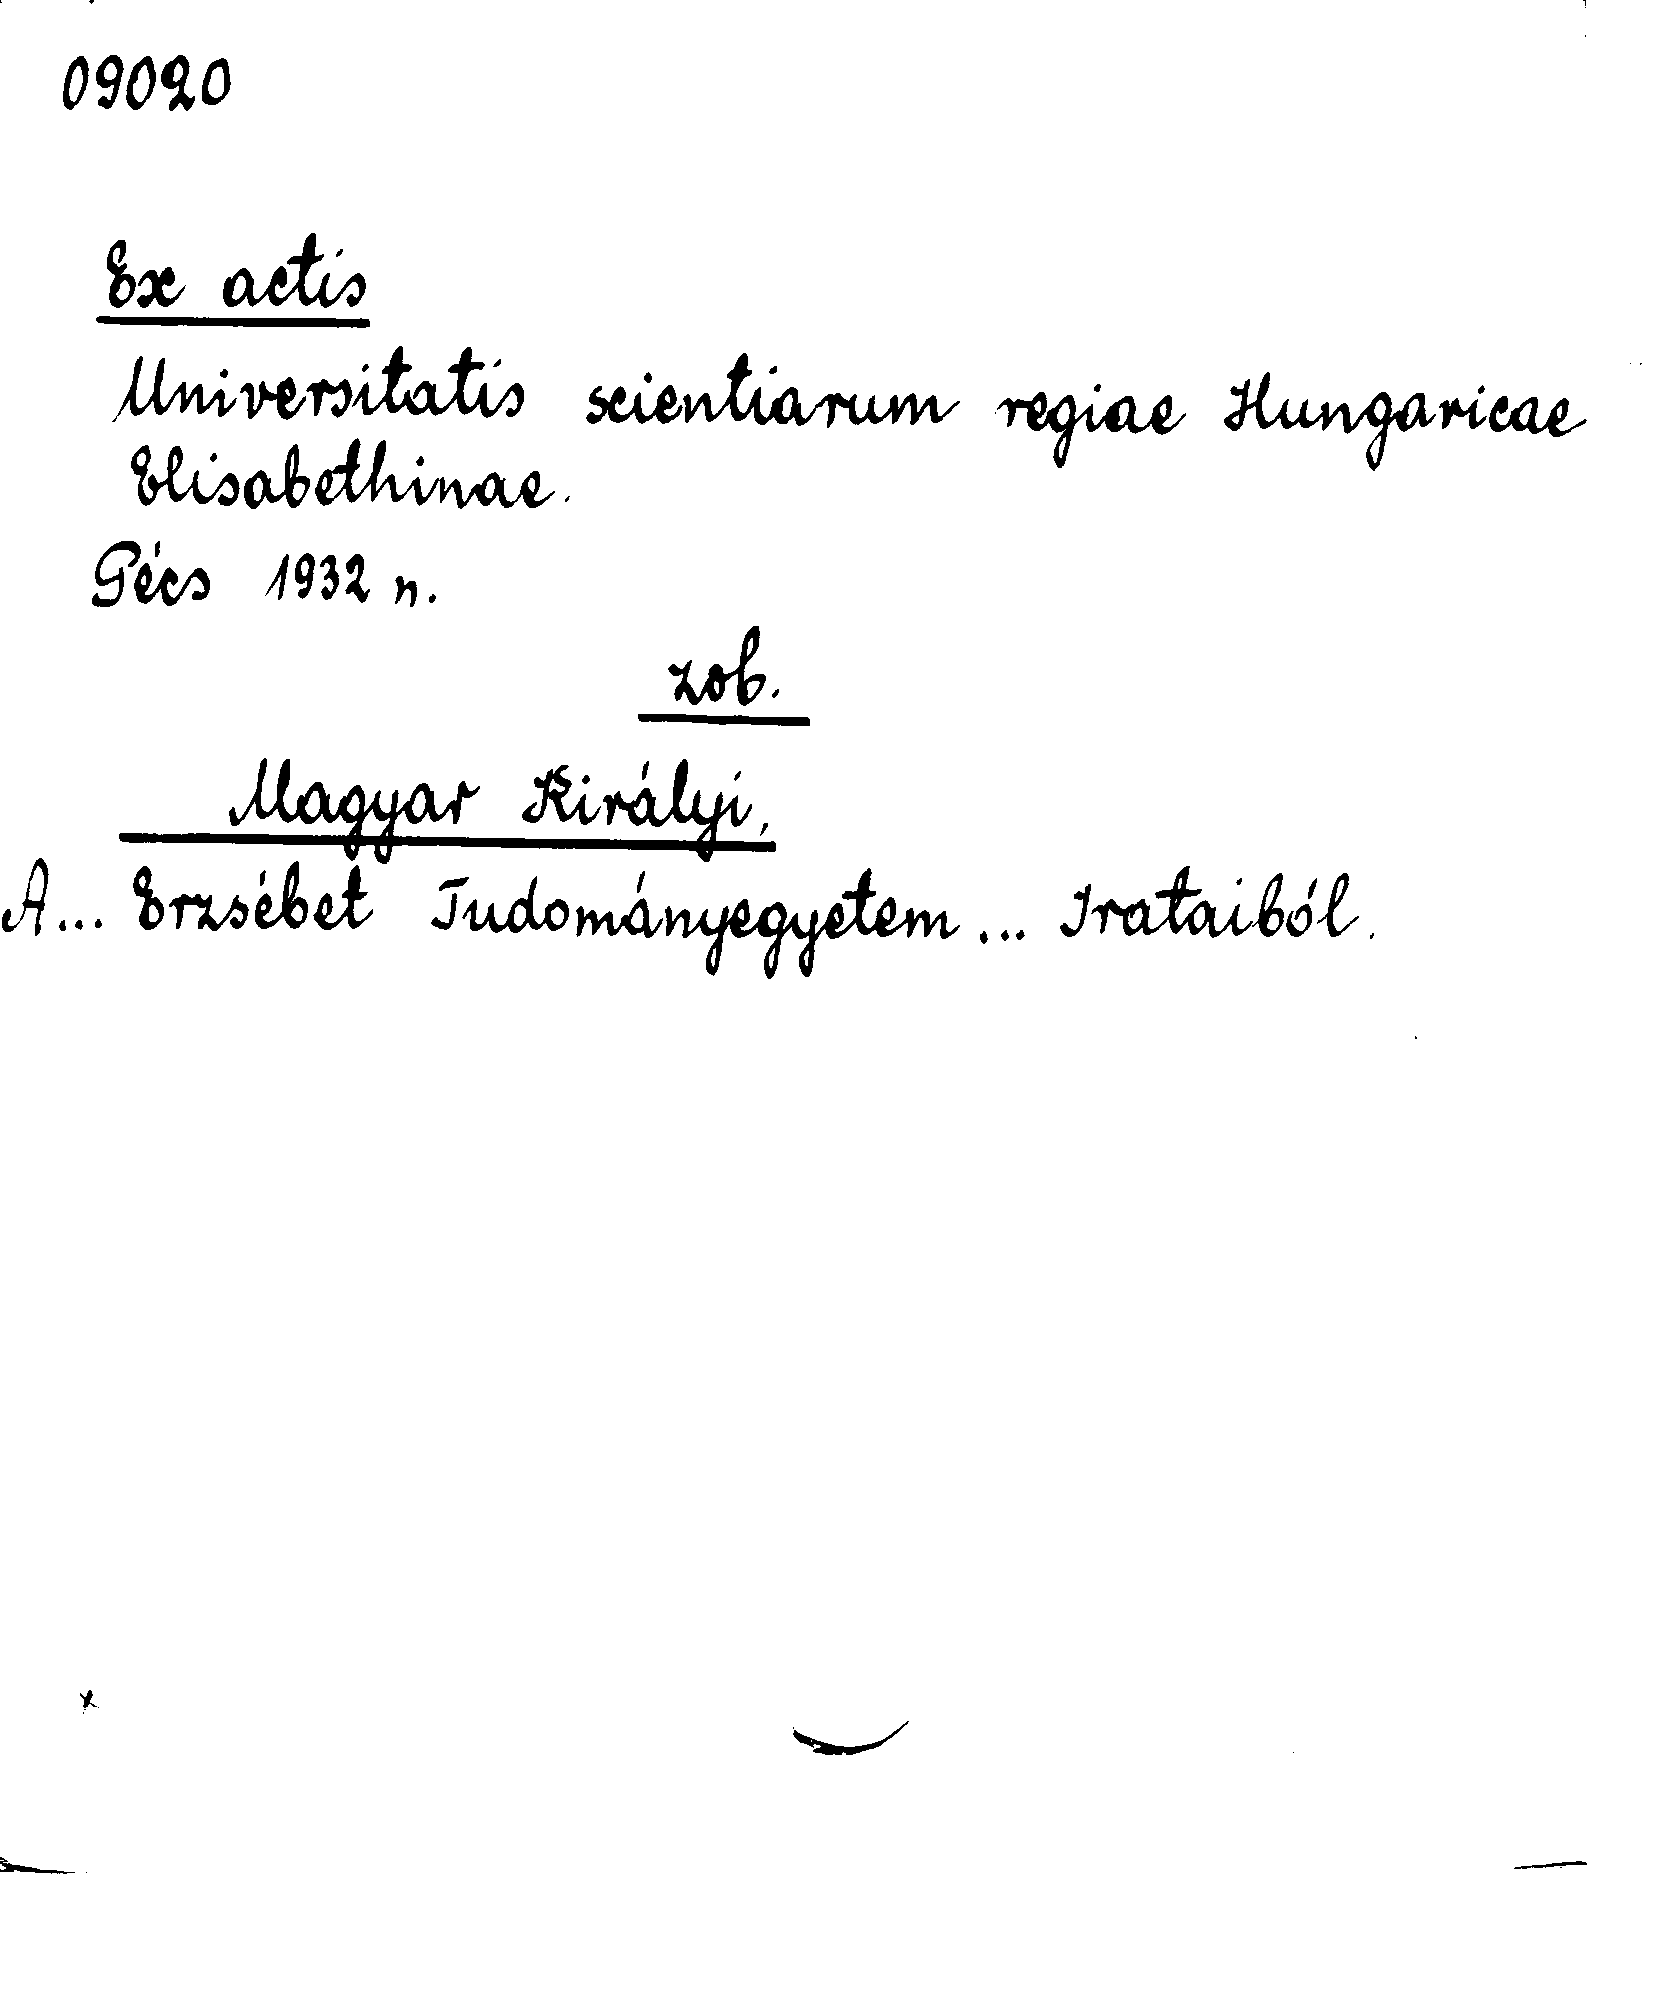 09020
Ex actis
Universitatis scientiarum regiae Hungaricae
Elisabethinae.
Pécs 1932 n.
zob.
Magyar Királyi,
A... Erzsébet Tudományegyetem... Irataiból.